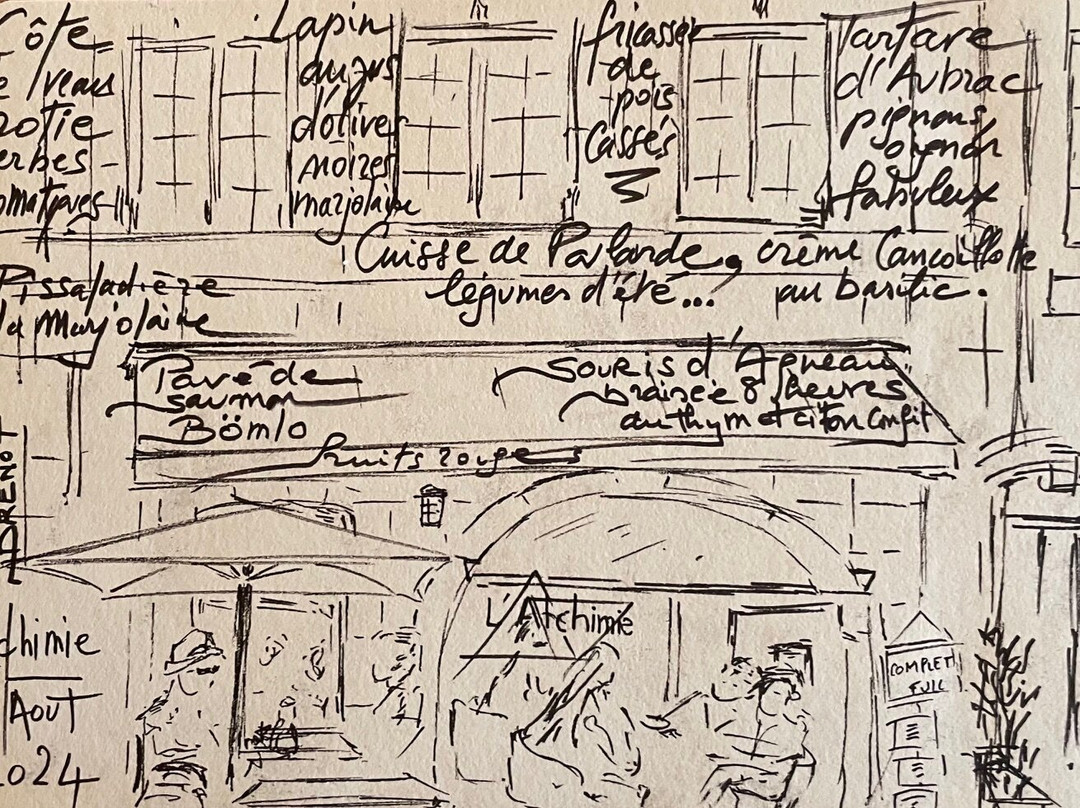 Côte
e /veau
rotie
erbes
omatiques
Lapin
au jus
d'olives
noires
marjolaine
fricassée
de
pois
Cassés
Tartare
d'Aubrac
pignons
oignon
fabuleux
Cuisse de Poularde, crème Cancoillotte
légumes d'été... au basilic.
Pissaladière
la Marjolaine
Pavé de
saumon
Bömlo
Souris d'Agneau
braisée 8 heures
au thym et citron confit
fruits rouges
L'Alchimie
COMPLET
FULL
chimie
AOUT
2024